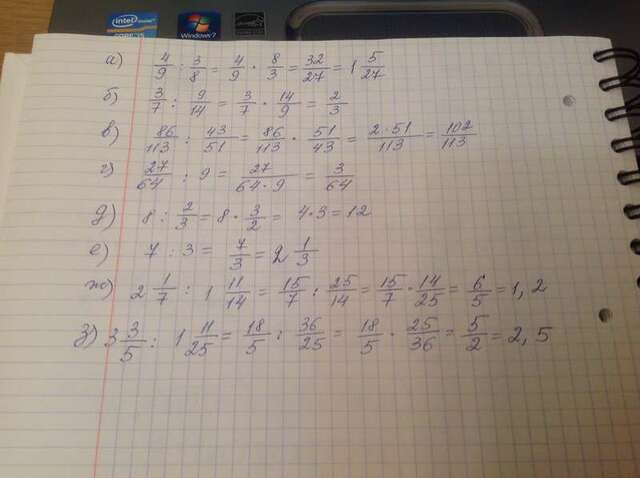 intel
Windows 7
а) 4/9 : 3/8 = 4/9 · 8/3 = 32/27 = 1 5/27
б) 3/7 : 9/14 = 3/7 · 14/9 = 2/3
в) 86/113 : 43/51 = 86/113 · 51/43 = 2·51/113 = 102/113
г) 27/64 : 9 = 27/64·9 = 3/64
д) 8 : 2/3 = 8 · 3/2 = 4·3 = 12
е) 7 : 3 = 7/3 = 2 1/3
ж) 2 1/7 : 1 11/14 = 15/7 : 25/14 = 15/7 · 14/25 = 6/5 = 1,2
з) 3 3/5 : 1 11/25 = 18/5 : 36/25 = 18/5 · 25/36 = 5/2 = 2,5